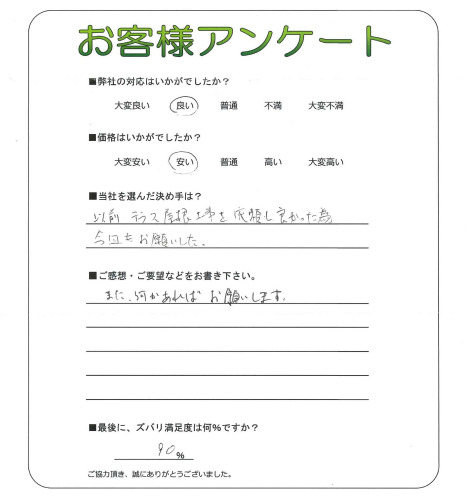 お客様アンケート
■弊社の対応はいかがでしたか？
大変良い 良い 普通 不満 大変不満
■価格はいかがでしたか？
大変安い 安い 普通 高い 大変高い
■当社を選んだ決め手は？
以前 テラス屋根工事を依頼し良かった為
今回もお願いした。
■ご感想・ご要望などをお書き下さい。
また、何かあれば お願いします。
■最後に、ズバリ満足度は何%ですか？
90%
ご協力頂き、誠にありがとうございました。